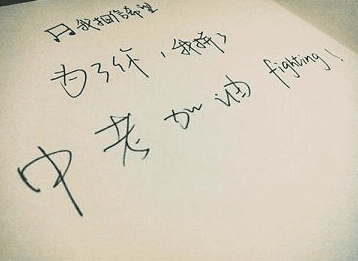 ♫我相信希望
为了你，我拼了
中考加油 fighting！